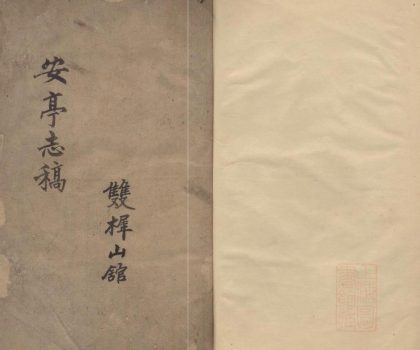 安亭志稿
雙樨山館